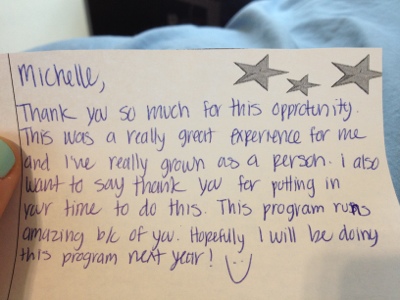 Michelle,
Thank you so much for this opprotunity.
This was a really great experience for me
and I've really grown as a person. I also
want to say thank you for putting in
your time to do this. This program runs
amazing b/c of you. Hopefully I will be doing
this program next year!